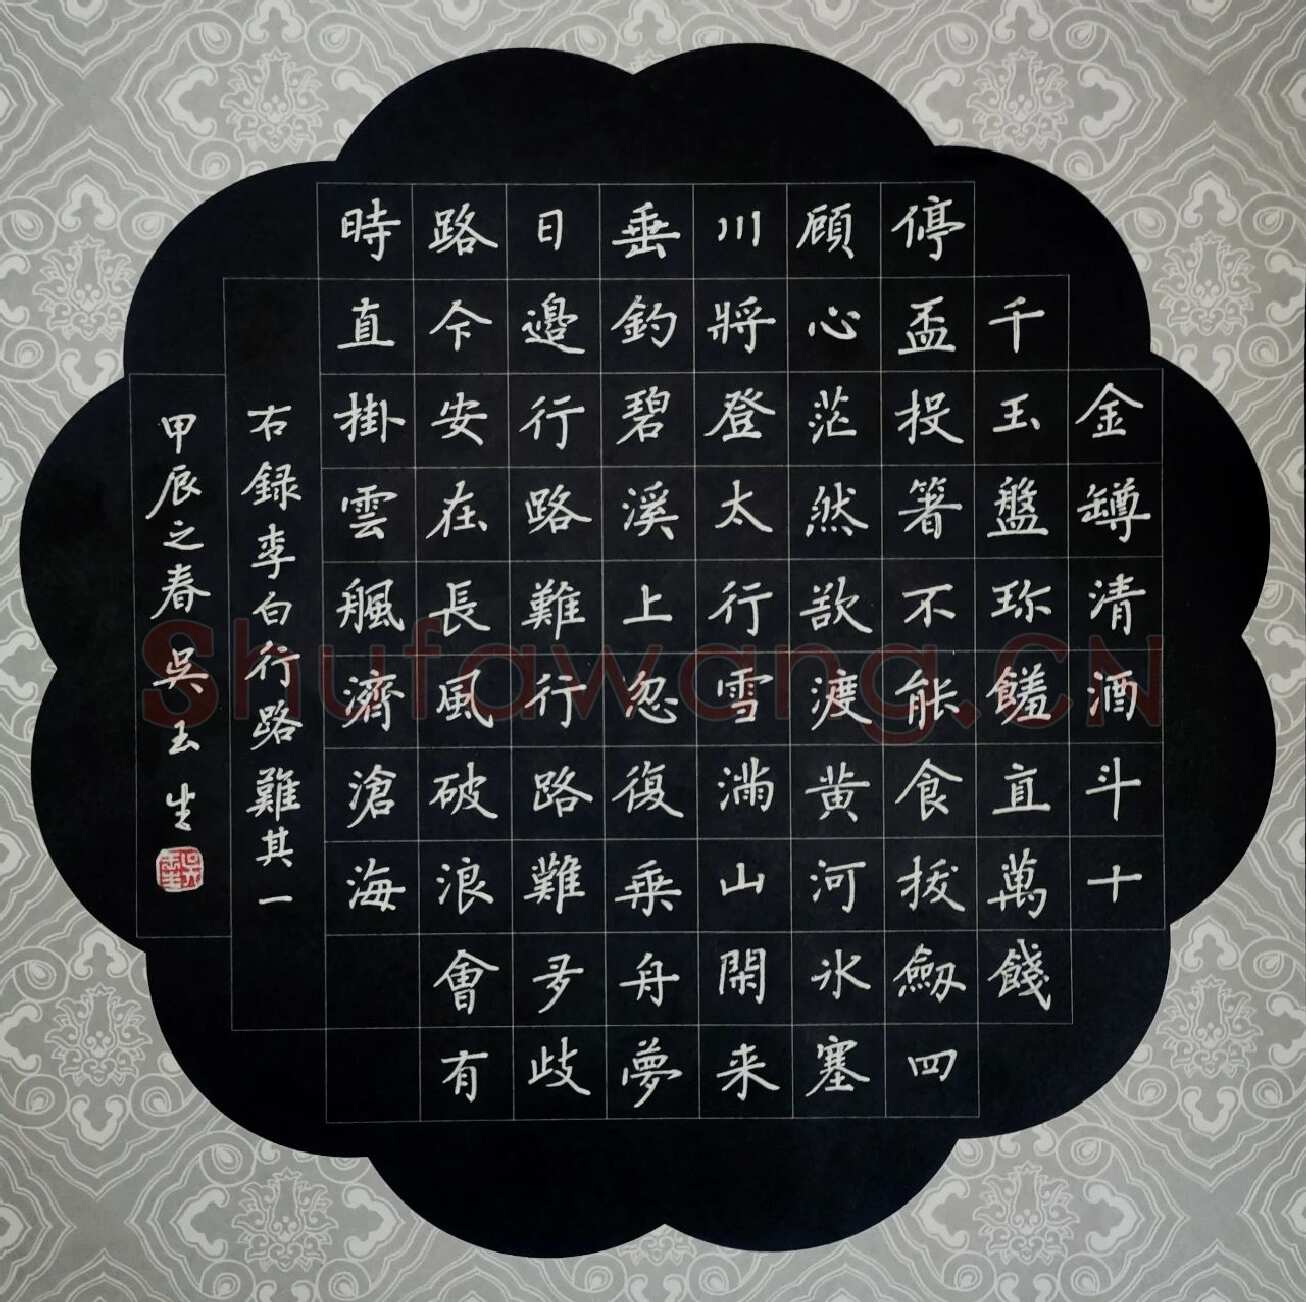 金罇清酒斗十
千玉盤珎饈直萬餞
停盃投箸不能食拔劒四
顧心茫然欲渡黄河氷塞
川將登太行雪滿山閑来
垂釣碧溪上忽復乘舟夢
日邉行路難行路難多歧
路今安在長風破浪會有
時直掛雲颿濟滄海
右録李白行路難其一
甲辰之春吳玉生
吳玉生
Shufawang.CN